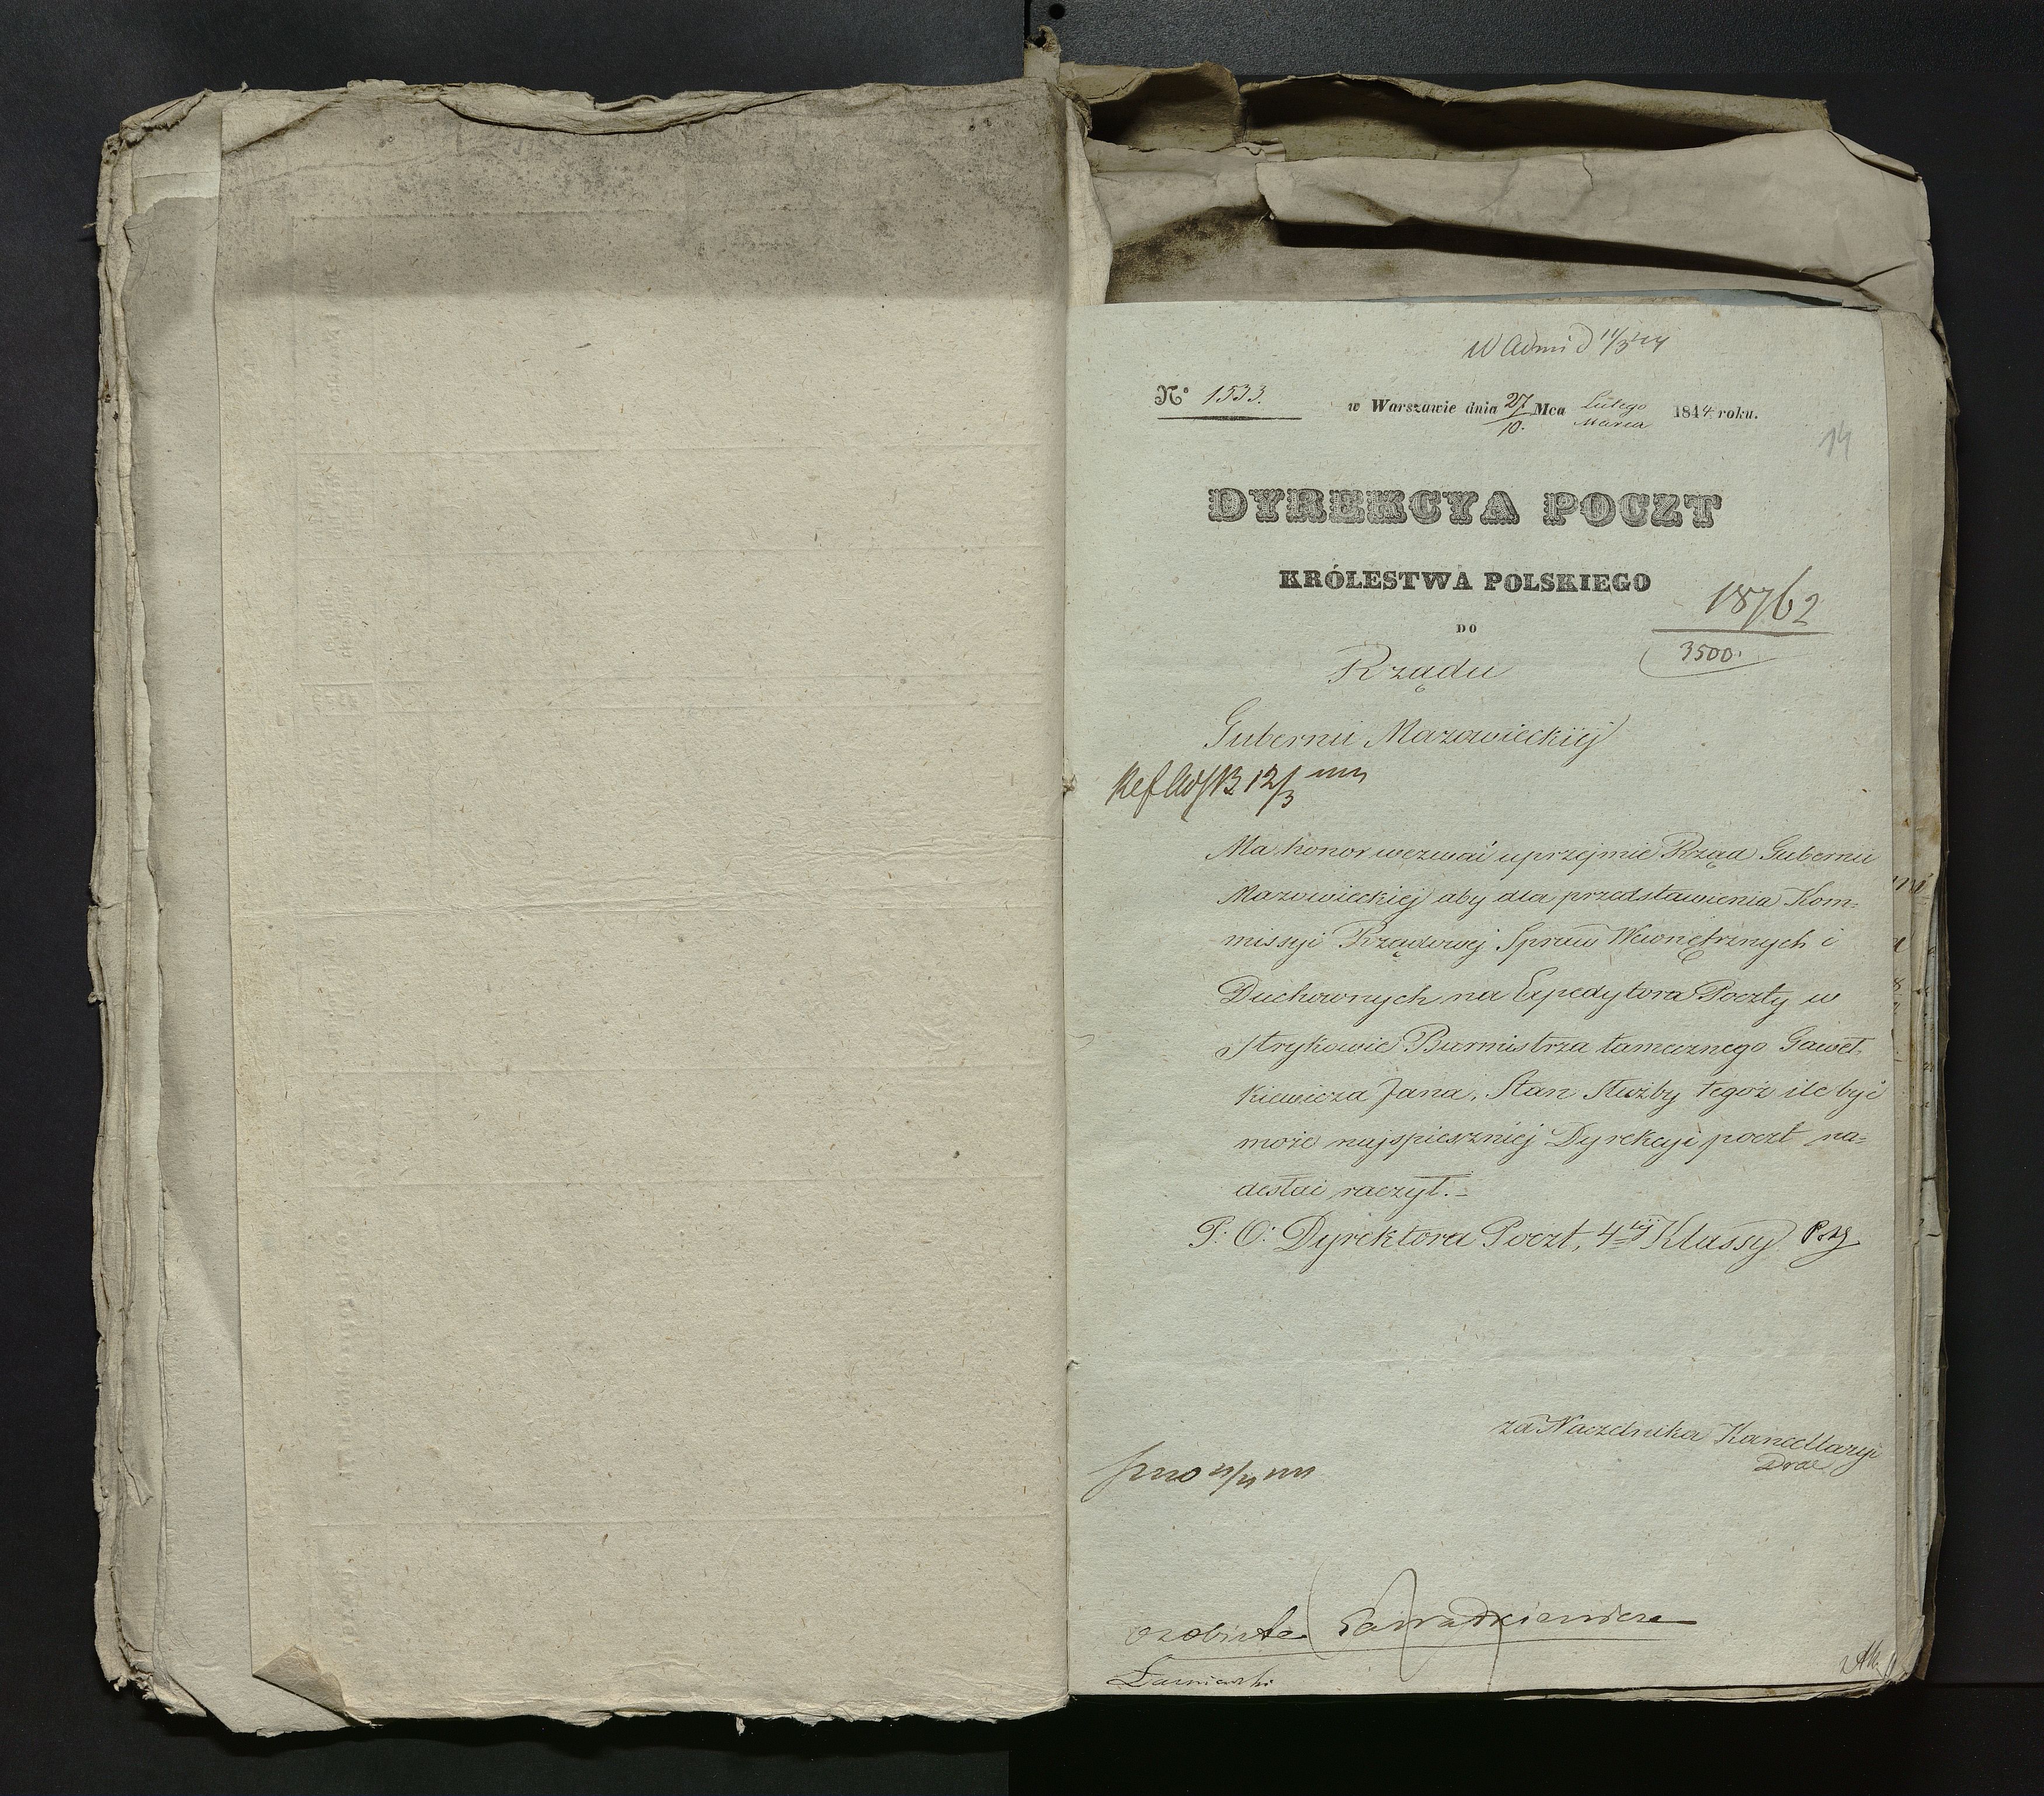 W Admi d 11/3 44
N° 1533.
w Warszawie dnia 27/10. Mca Lutego/Marca 1844 roku.
14
DYREKCYA POCZT
KRÓLESTWA POLSKIEGO
18762
DO
3500.
Rządu
Gubernii Mazowieckiej
12/3
Ma honor wezwać uprzejmie Rząd Gubernii
Mazowieckiej aby dla przedstawienia Kom=
missyi Rządowej Spraw Wewnętrznych i
Duchownych na Expedytora Poczty w
Strykowie Burmistrza tamecznego Gaweł=
kiewicza Jana, Stan Służby tegoż ile być
może najspieszniej Dyrekcyi poczt na=
desłać raczył.=
P: O: Dyrektora Poczt, 4tej Klassy
za Naczelnika Kancellaryi
osobiste